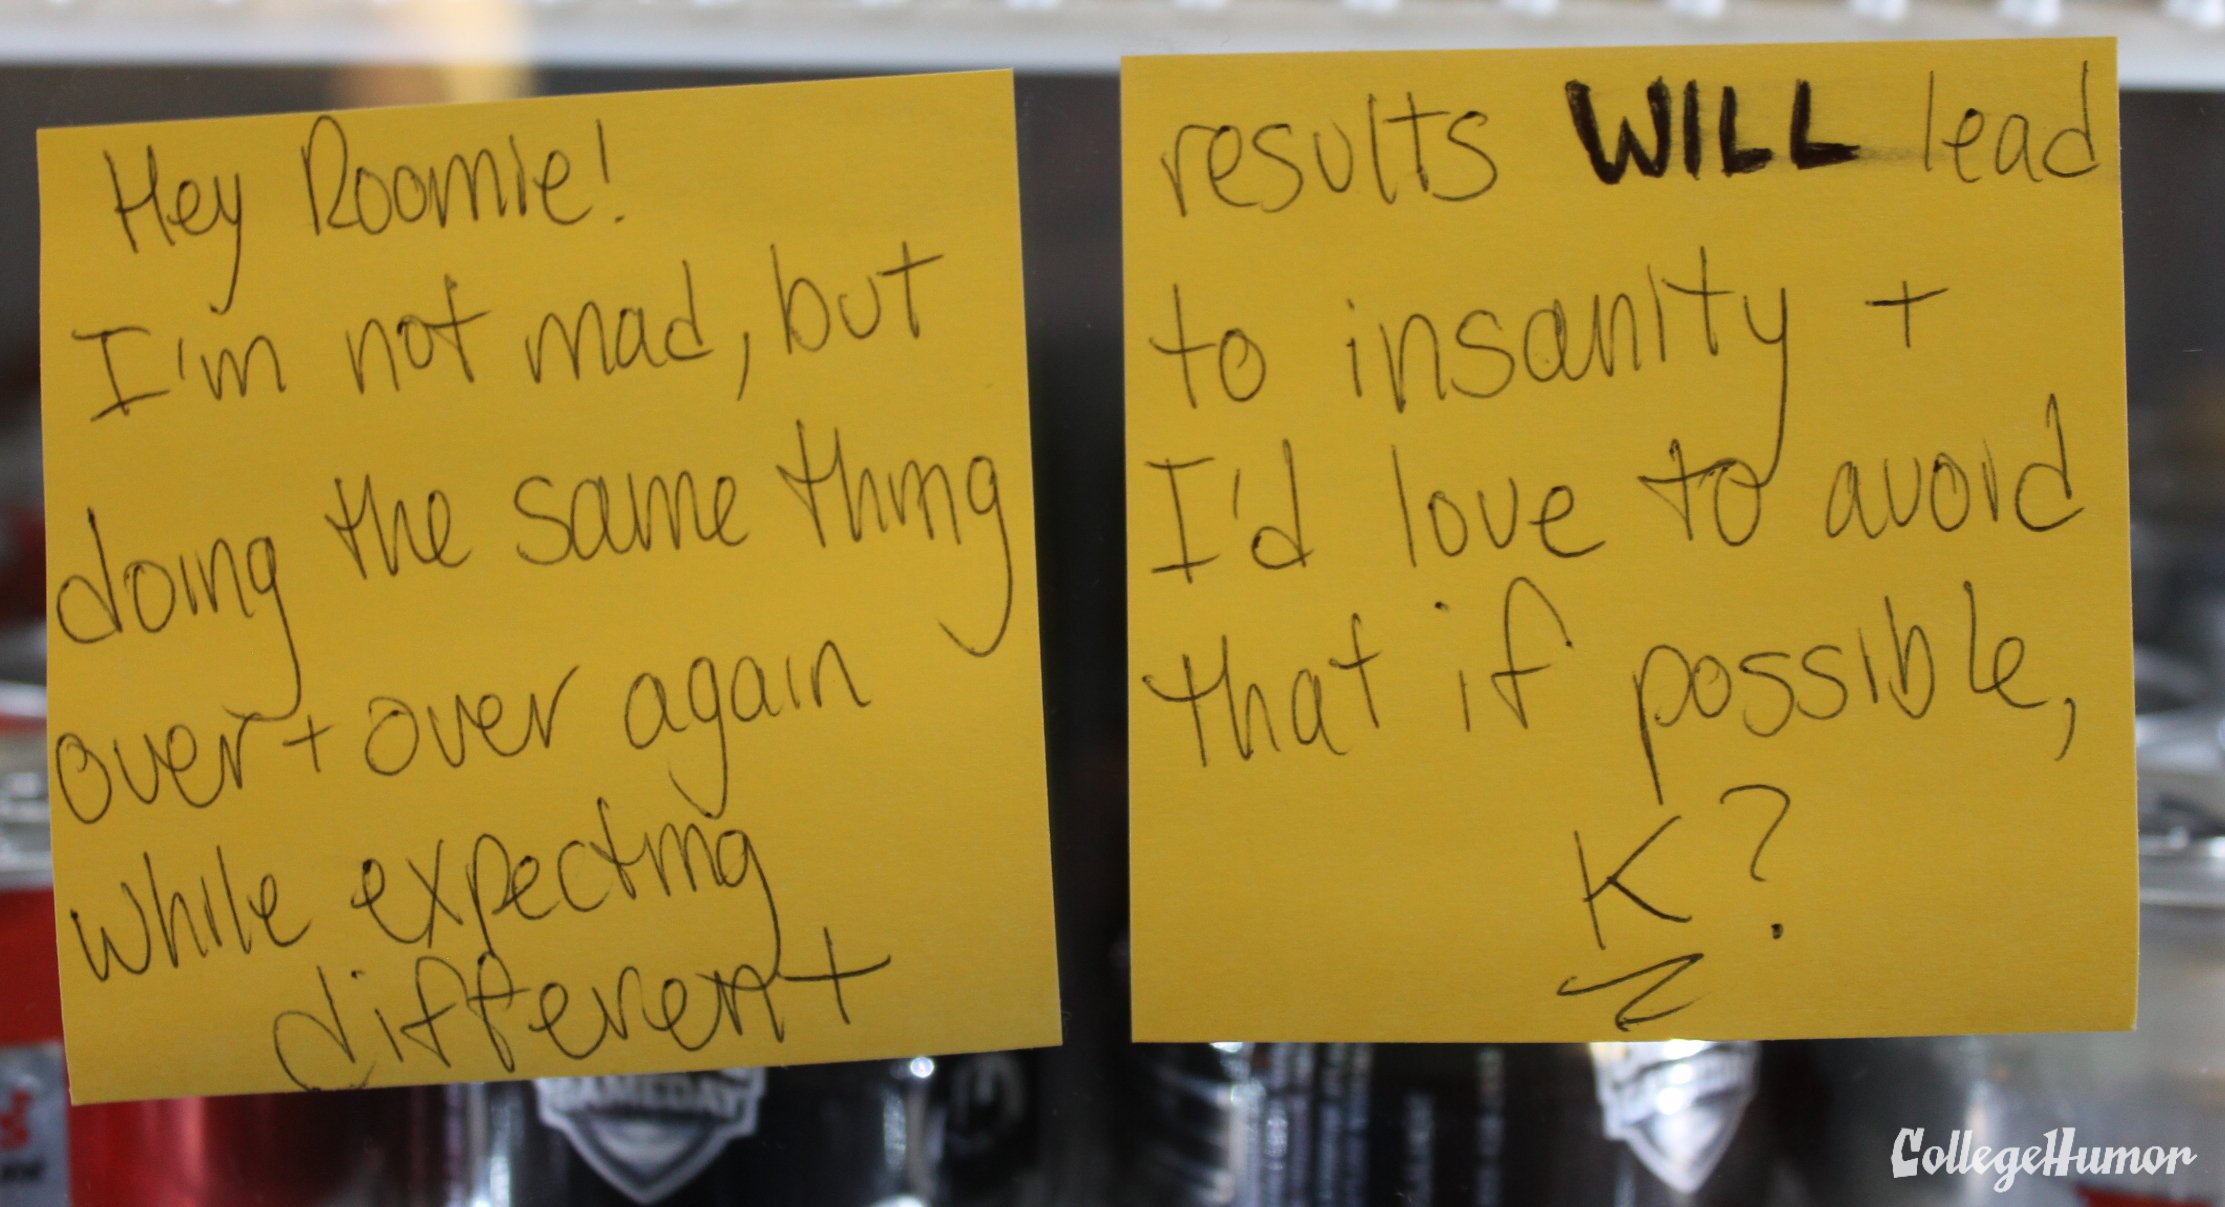 Hey Roomie!
I'm not mad, but
doing the same thing
over + over again
while expecting
different
results WILL lead
to insanity +
I'd love to avoid
that if possible,
K?
GAMEDAY
CollegeHumor